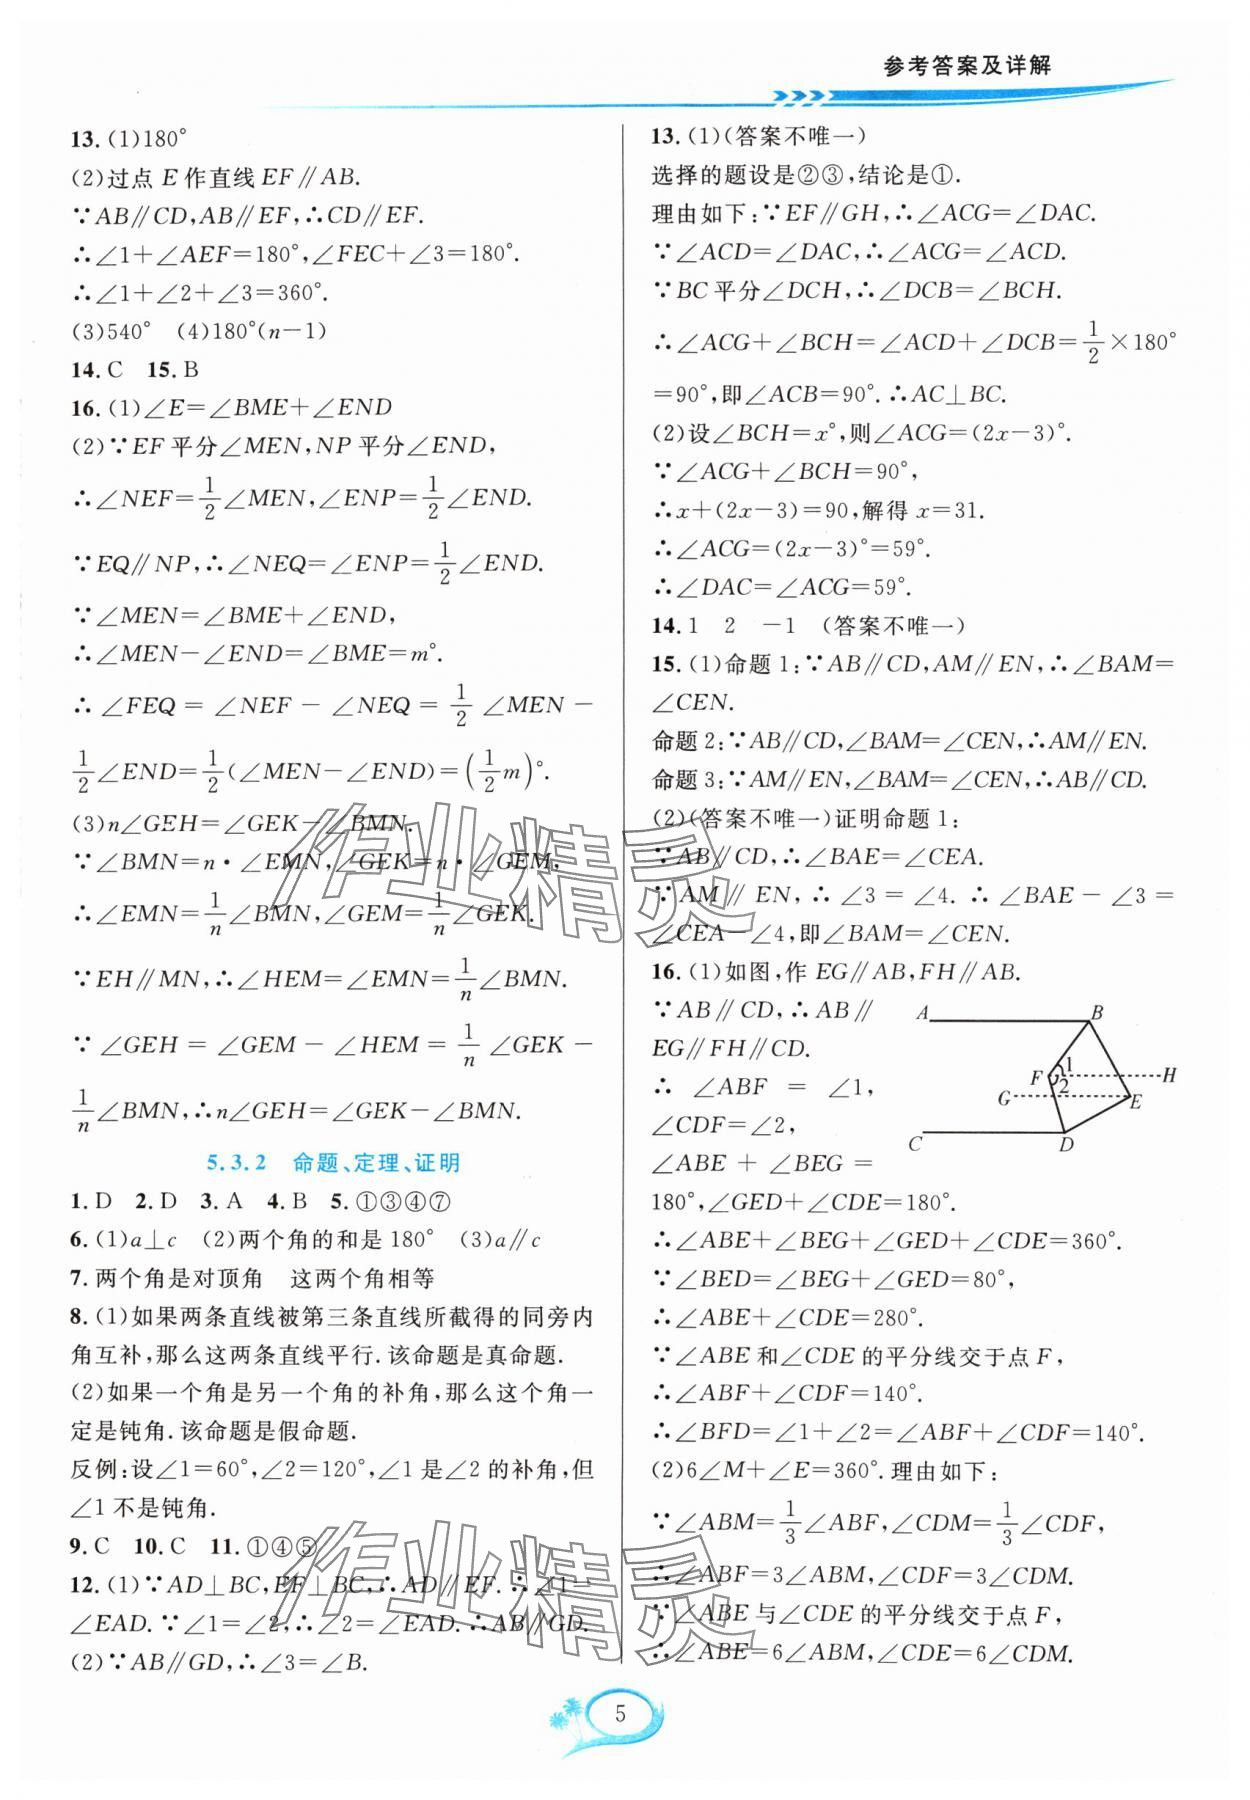 参考答案及详解
13.(1)180°
(2)过点 E 作直线 EF∥AB.
∵AB∥CD,AB∥EF,∴CD∥EF.
∴∠1+∠AEF=180°,∠FEC+∠3=180°.
∴∠1+∠2+∠3=360°.
(3)540° (4)180°(n-1)
14.C 15.B
16.(1)∠E=∠BME+∠END
(2)∵EF 平分∠MEN,NP 平分∠END,
∴∠NEF=1/2∠MEN,∠ENP=1/2∠END.
∵EQ∥NP,∴∠NEQ=∠ENP=1/2∠END.
∵∠MEN=∠BME+∠END,
∴∠MEN-∠END=∠BME=m°.
∴∠FEQ=∠NEF-∠NEQ=1/2∠MEN-
1/2∠END=1/2(∠MEN-∠END)=(1/2m)°.
(3)n∠GEH=∠GEK-∠BMN.
∵∠BMN=n·∠EMN,∠GEK=n·∠GEM,
∴∠EMN=1/n∠BMN,∠GEM=1/n∠GEK.
∵EH∥MN,∴∠HEM=∠EMN=1/n∠BMN.
∵∠GEH=∠GEM-∠HEM=1/n∠GEK-
1/n∠BMN,∴n∠GEH=∠GEK-∠BMN.
5.3.2 命题、定理、证明
1.D 2.D 3.A 4.B 5.①③④⑦
6.(1)a⊥c (2)两个角的和是180° (3)a∥c
7.两个角是对顶角 这两个角相等
8.(1)如果两条直线被第三条直线所截得的同旁内
角互补,那么这两条直线平行.该命题是真命题.
(2)如果一个角是另一个角的补角,那么这个角一
定是钝角.该命题是假命题.
反例:设∠1=60°,∠2=120°,∠1是∠2的补角,但
∠1不是钝角.
9.C 10.C 11.①④⑤
12.(1)∵AD⊥BC,EF⊥BC,∴AD∥EF.∴∠1=
∠EAD.∵∠1=∠2,∴∠2=∠EAD.∴AB∥GD.
(2)∵AB∥GD,∴∠3=∠B.
13.(1)(答案不唯一)
选择的题设是②③,结论是①.
理由如下:∵EF∥GH,∴∠ACG=∠DAC.
∵∠ACD=∠DAC,∴∠ACG=∠ACD.
∵BC平分∠DCH,∴∠DCB=∠BCH.
∴∠ACG+∠BCH=∠ACD+∠DCB=1/2×180°
=90°,即∠ACB=90°.∴AC⊥BC.
(2)设∠BCH=x°,则∠ACG=(2x-3)°.
∵∠ACG+∠BCH=90°,
∴x+(2x-3)=90,解得x=31.
∴∠ACG=(2x-3)°=59°.
∴∠DAC=∠ACG=59°.
14.1 2 -1 (答案不唯一)
15.(1)命题1:∵AB∥CD,AM∥EN,∴∠BAM=
∠CEN.
命题2:∵AB∥CD,∠BAM=∠CEN,∴AM∥EN.
命题3:∵AM∥EN,∠BAM=∠CEN,∴AB∥CD.
(2)(答案不唯一)证明命题1:
∵AB∥CD,∴∠BAE=∠CEA.
∵AM∥EN,∴∠3=∠4.∴∠BAE-∠3=
∠CEA-∠4,即∠BAM=∠CEN.
16.(1)如图,作EG∥AB,FH∥AB.
∵AB∥CD,∴AB∥
EG∥FH∥CD.
∴∠ABF=∠1,
∠CDF=∠2,
∠ABE+∠BEG=
A B
F 1 2 H
G E
C D
180°,∠GED+∠CDE=180°.
∴∠ABE+∠BEG+∠GED+∠CDE=360°.
∵∠BED=∠BEG+∠GED=80°,
∴∠ABE+∠CDE=280°.
∵∠ABE和∠CDE的平分线交于点F,
∴∠ABF+∠CDF=140°.
∴∠BFD=∠1+∠2=∠ABF+∠CDF=140°.
(2)6∠M+∠E=360°.理由如下:
∵∠ABM=1/3∠ABF,∠CDM=1/3∠CDF,
∴∠ABF=3∠ABM,∠CDF=3∠CDM.
∵∠ABE与∠CDE的平分线交于点F,
∴∠ABE=6∠ABM,∠CDE=6∠CDM.
作业精灵
作业精灵
5